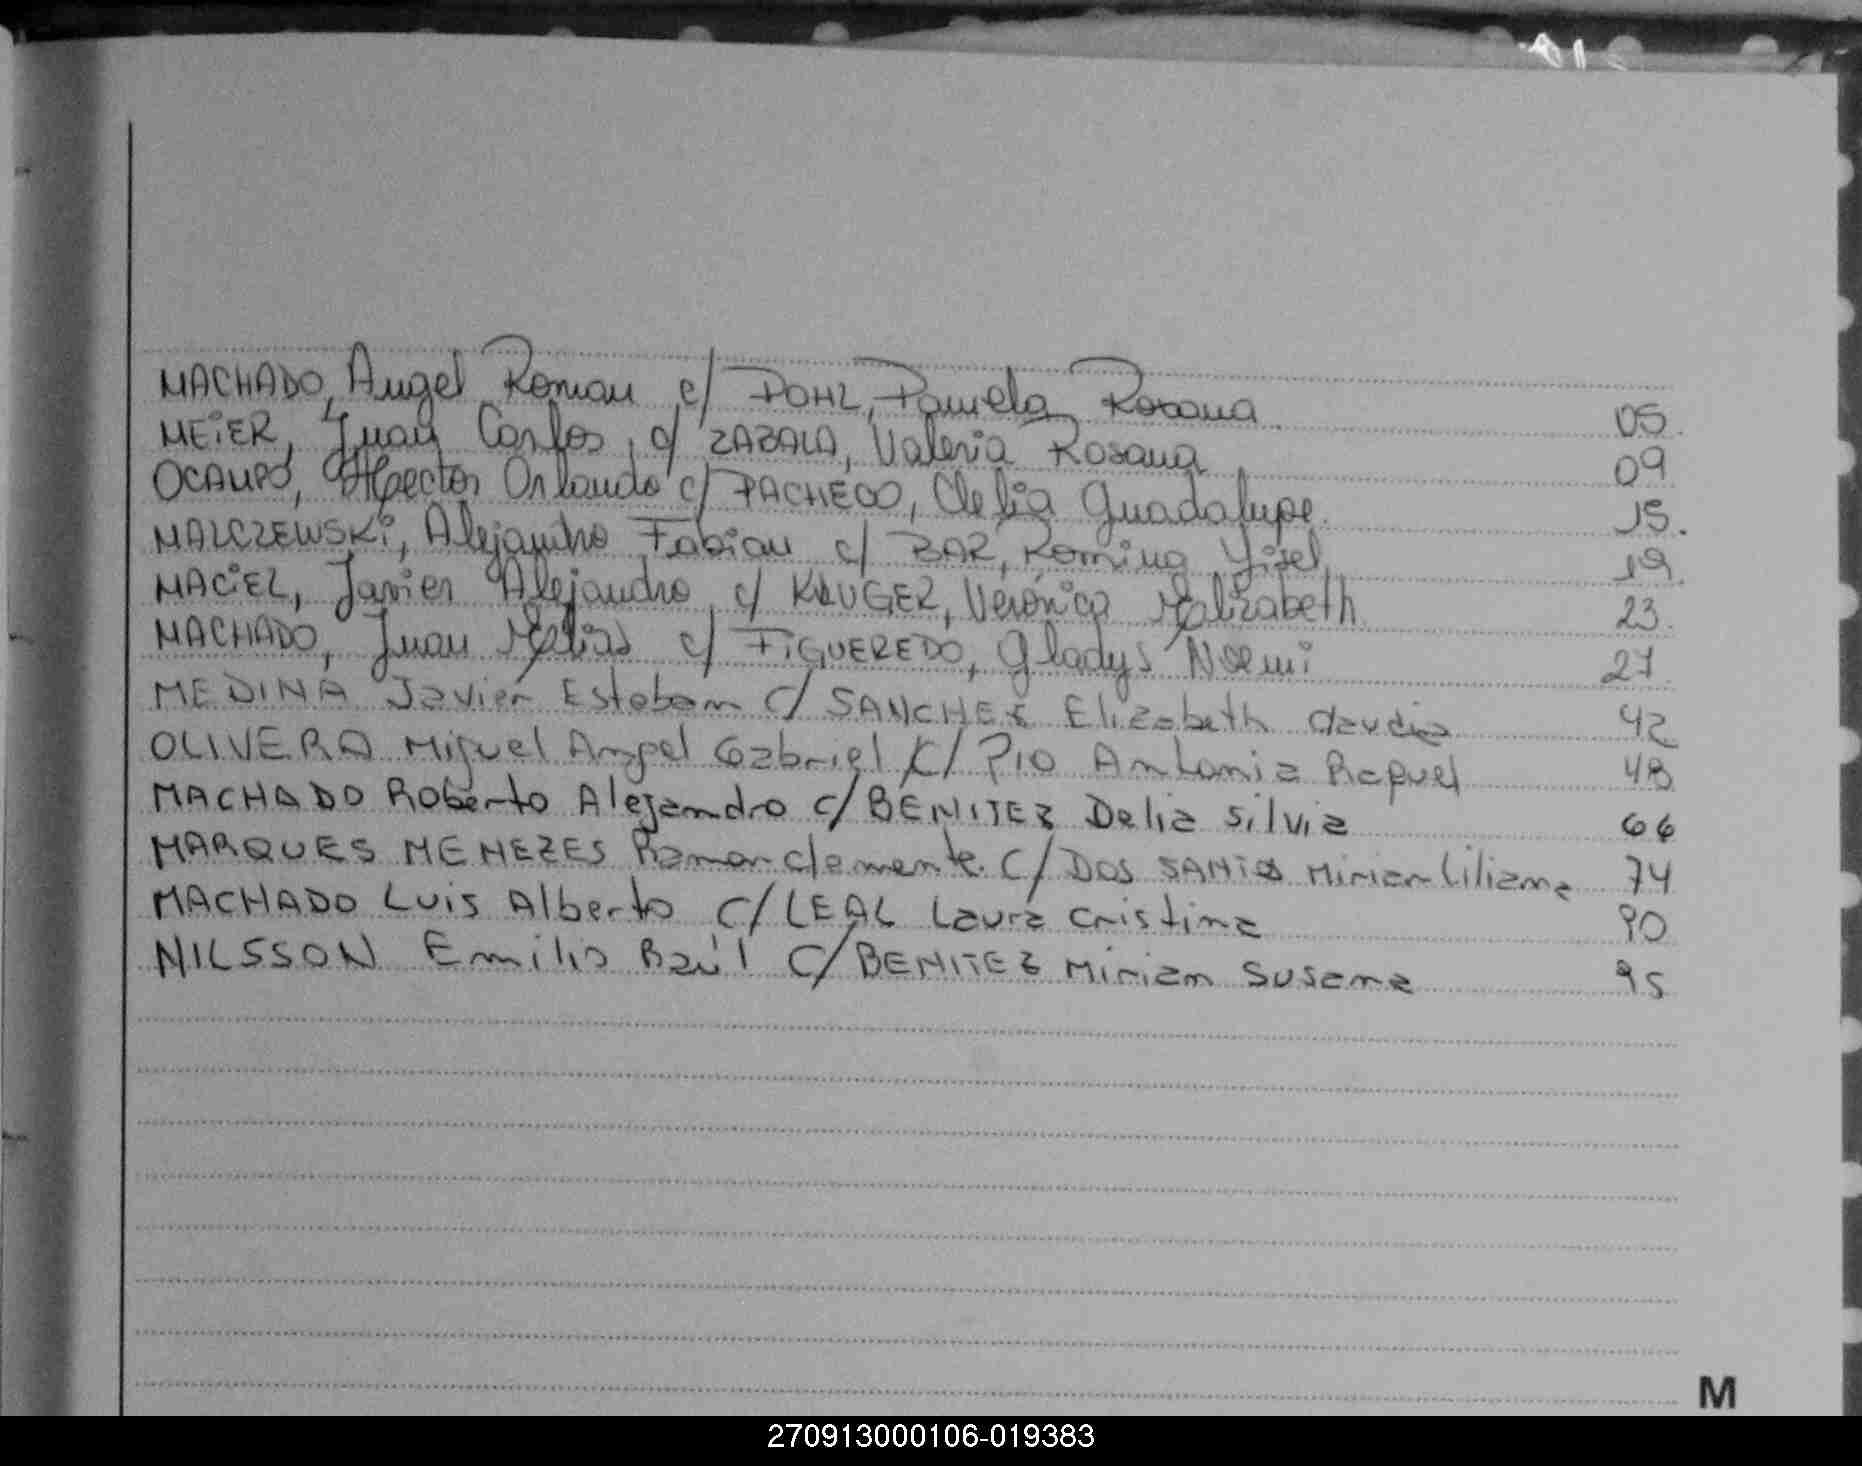 MACHADO, Angel Roman c/ POHL, Pamela Rosana 05.
MEIER, Juan Carlos, c/ ZABALA, Valeria Rosana 09
OCAMPO, Hector Orlando c/ PACHECO, Clelia Guadalupe. 15.
MALCZEWSKI, Alejandro Fabian c/ BAR, Romina Yisel 19.
MACIEL, Javier Alejandro c/ KRUGER, Verónica Elizabeth 23.
MACHADO, Juan Elias c/ FIGUEREDO, Gladys Noemi 27.
MEDINA Javier Esteban c/ SANCHEZ Elizabeth Claudia 42
OLIVERA Miguel Angel Gabriel c/ PIO Antonia Raquel 48
MACHADO Roberto Alejandro c/ BENITEZ Delia Silvia 66
MARQUES MENEZES Ramon Clemente c/ DOS SANTOS Mirian Liliana 74
MACHADO Luis Alberto c/ LEAL Laura Cristina 90
NILSSON Emilio Raúl c/ BENITEZ Miriam Susana 95
M
270913000106-019383